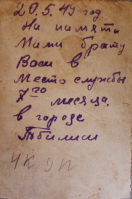 20.5.49 год
На память
Мами брату
Васи в
Место службы
7го месяца,
в городе
Тбилиси